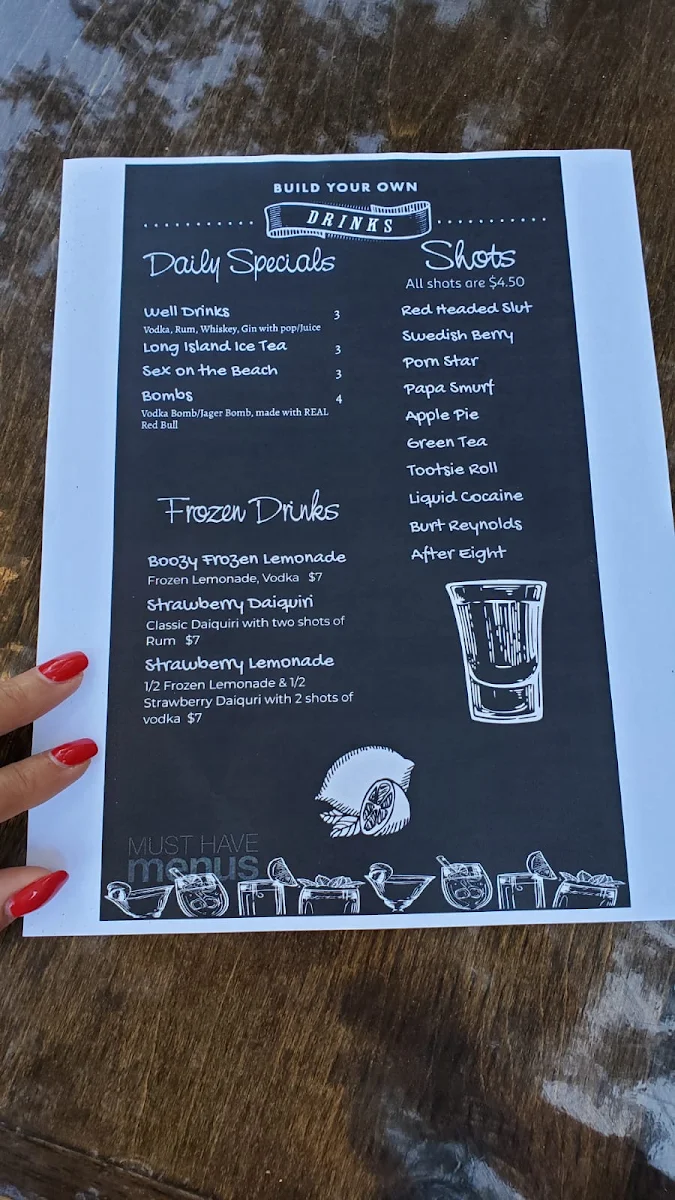 BUILD YOUR OWN
DRINKS
Daily Specials
Well Drinks 3
Vodka, Rum, Whiskey, Gin with pop/Juice
Long Island Ice Tea 3
Sex on the Beach 3
Bombs 4
Vodka Bomb/Jager Bomb, made with REAL
Red Bull
Frozen Drinks
Boozy Frozen Lemonade
Frozen Lemonade, Vodka $7
Strawberry Daiquiri
Classic Daiquiri with two shots of
Rum $7
Strawberry Lemonade
1/2 Frozen Lemonade & 1/2
Strawberry Daiquri with 2 shots of
vodka $7
Shots
All shots are $4.50
Red Headed Slut
Swedish Berry
Porn Star
Papa Smurf
Apple Pie
Green Tea
Tootsie Roll
Liquid Cocaine
Burt Reynolds
After Eight
MUST HAVE
menus